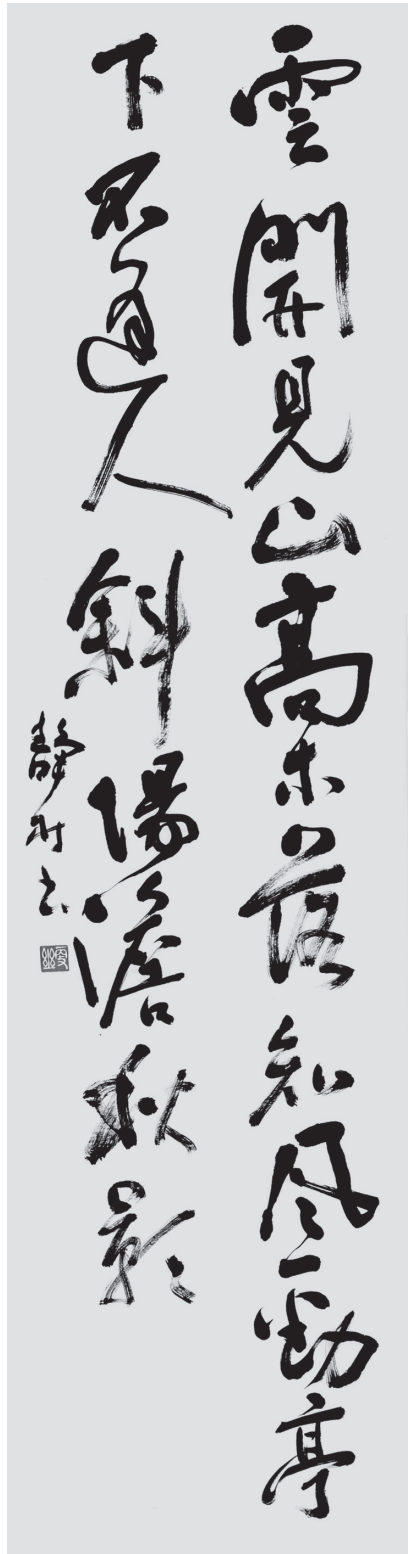 雲開見山高木落知風勁亭
下不逢人斜陽澹秋影
靜村書